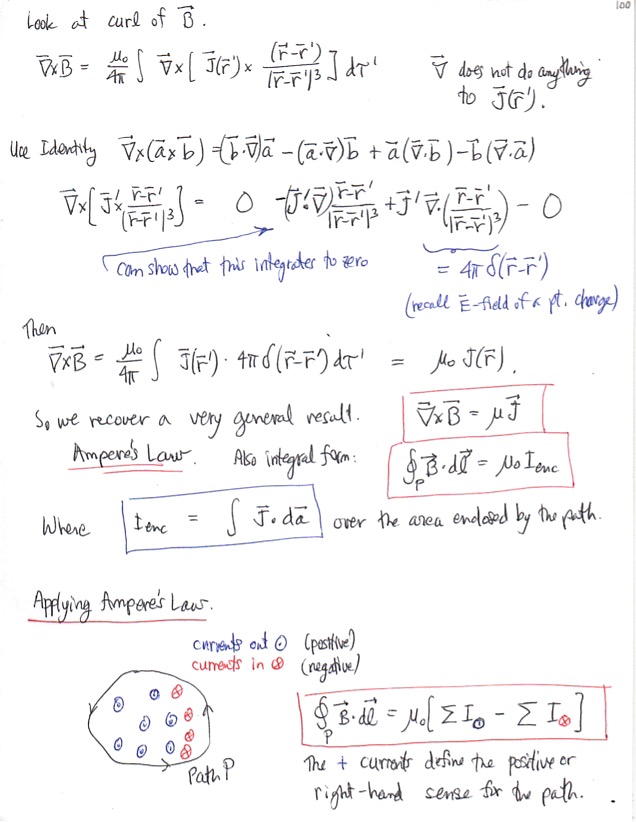 100
Look at curl of B⃗.
∇⃗×B⃗ = μ₀/4π ∫ ∇⃗×[ J⃗(r⃗') × (r⃗-r⃗')/|r⃗-r⃗'|³ ] dτ'    ∇⃗ does not do anything
to J⃗(r⃗').
Use Identity ∇⃗×(a⃗×b⃗) = (b⃗·∇⃗)a⃗ - (a⃗·∇⃗)b⃗ + a⃗(∇⃗·b⃗) - b⃗(∇⃗·a⃗)
∇⃗×[J⃗'×(r⃗-r⃗')/|r⃗-r⃗'|³] = 0 -(J⃗'·∇⃗) r⃗-r⃗'/|r⃗-r⃗'|³ + J⃗' ∇⃗·(r⃗-r⃗'/|r⃗-r⃗'|³) - 0
can show that this integrates to zero    = 4πδ(r⃗-r⃗')
(recall E⃗-field of a pt. charge)
Then
∇⃗×B⃗ = μ₀/4π ∫ J⃗(r⃗') · 4πδ(r⃗-r⃗') dτ' = μ₀ J(r⃗).
So we recover a very general result.    ∇⃗×B⃗ = μJ⃗
Ampere's Law.    Also integral form:    ∮ₚ B⃗·dl⃗ = μ₀ Ienc
Where    Ienc = ∫ J⃗·da⃗    over the area enclosed by the path.
Applying Ampere's Law.
currents out ⊙ (positive)
currents in ⊗ (negative)
∮ₚ B⃗·dl⃗ = μ₀[ Σ I⊙ - Σ I⊗ ]
Path P
The + currents define the positive or
right-hand sense for the path.